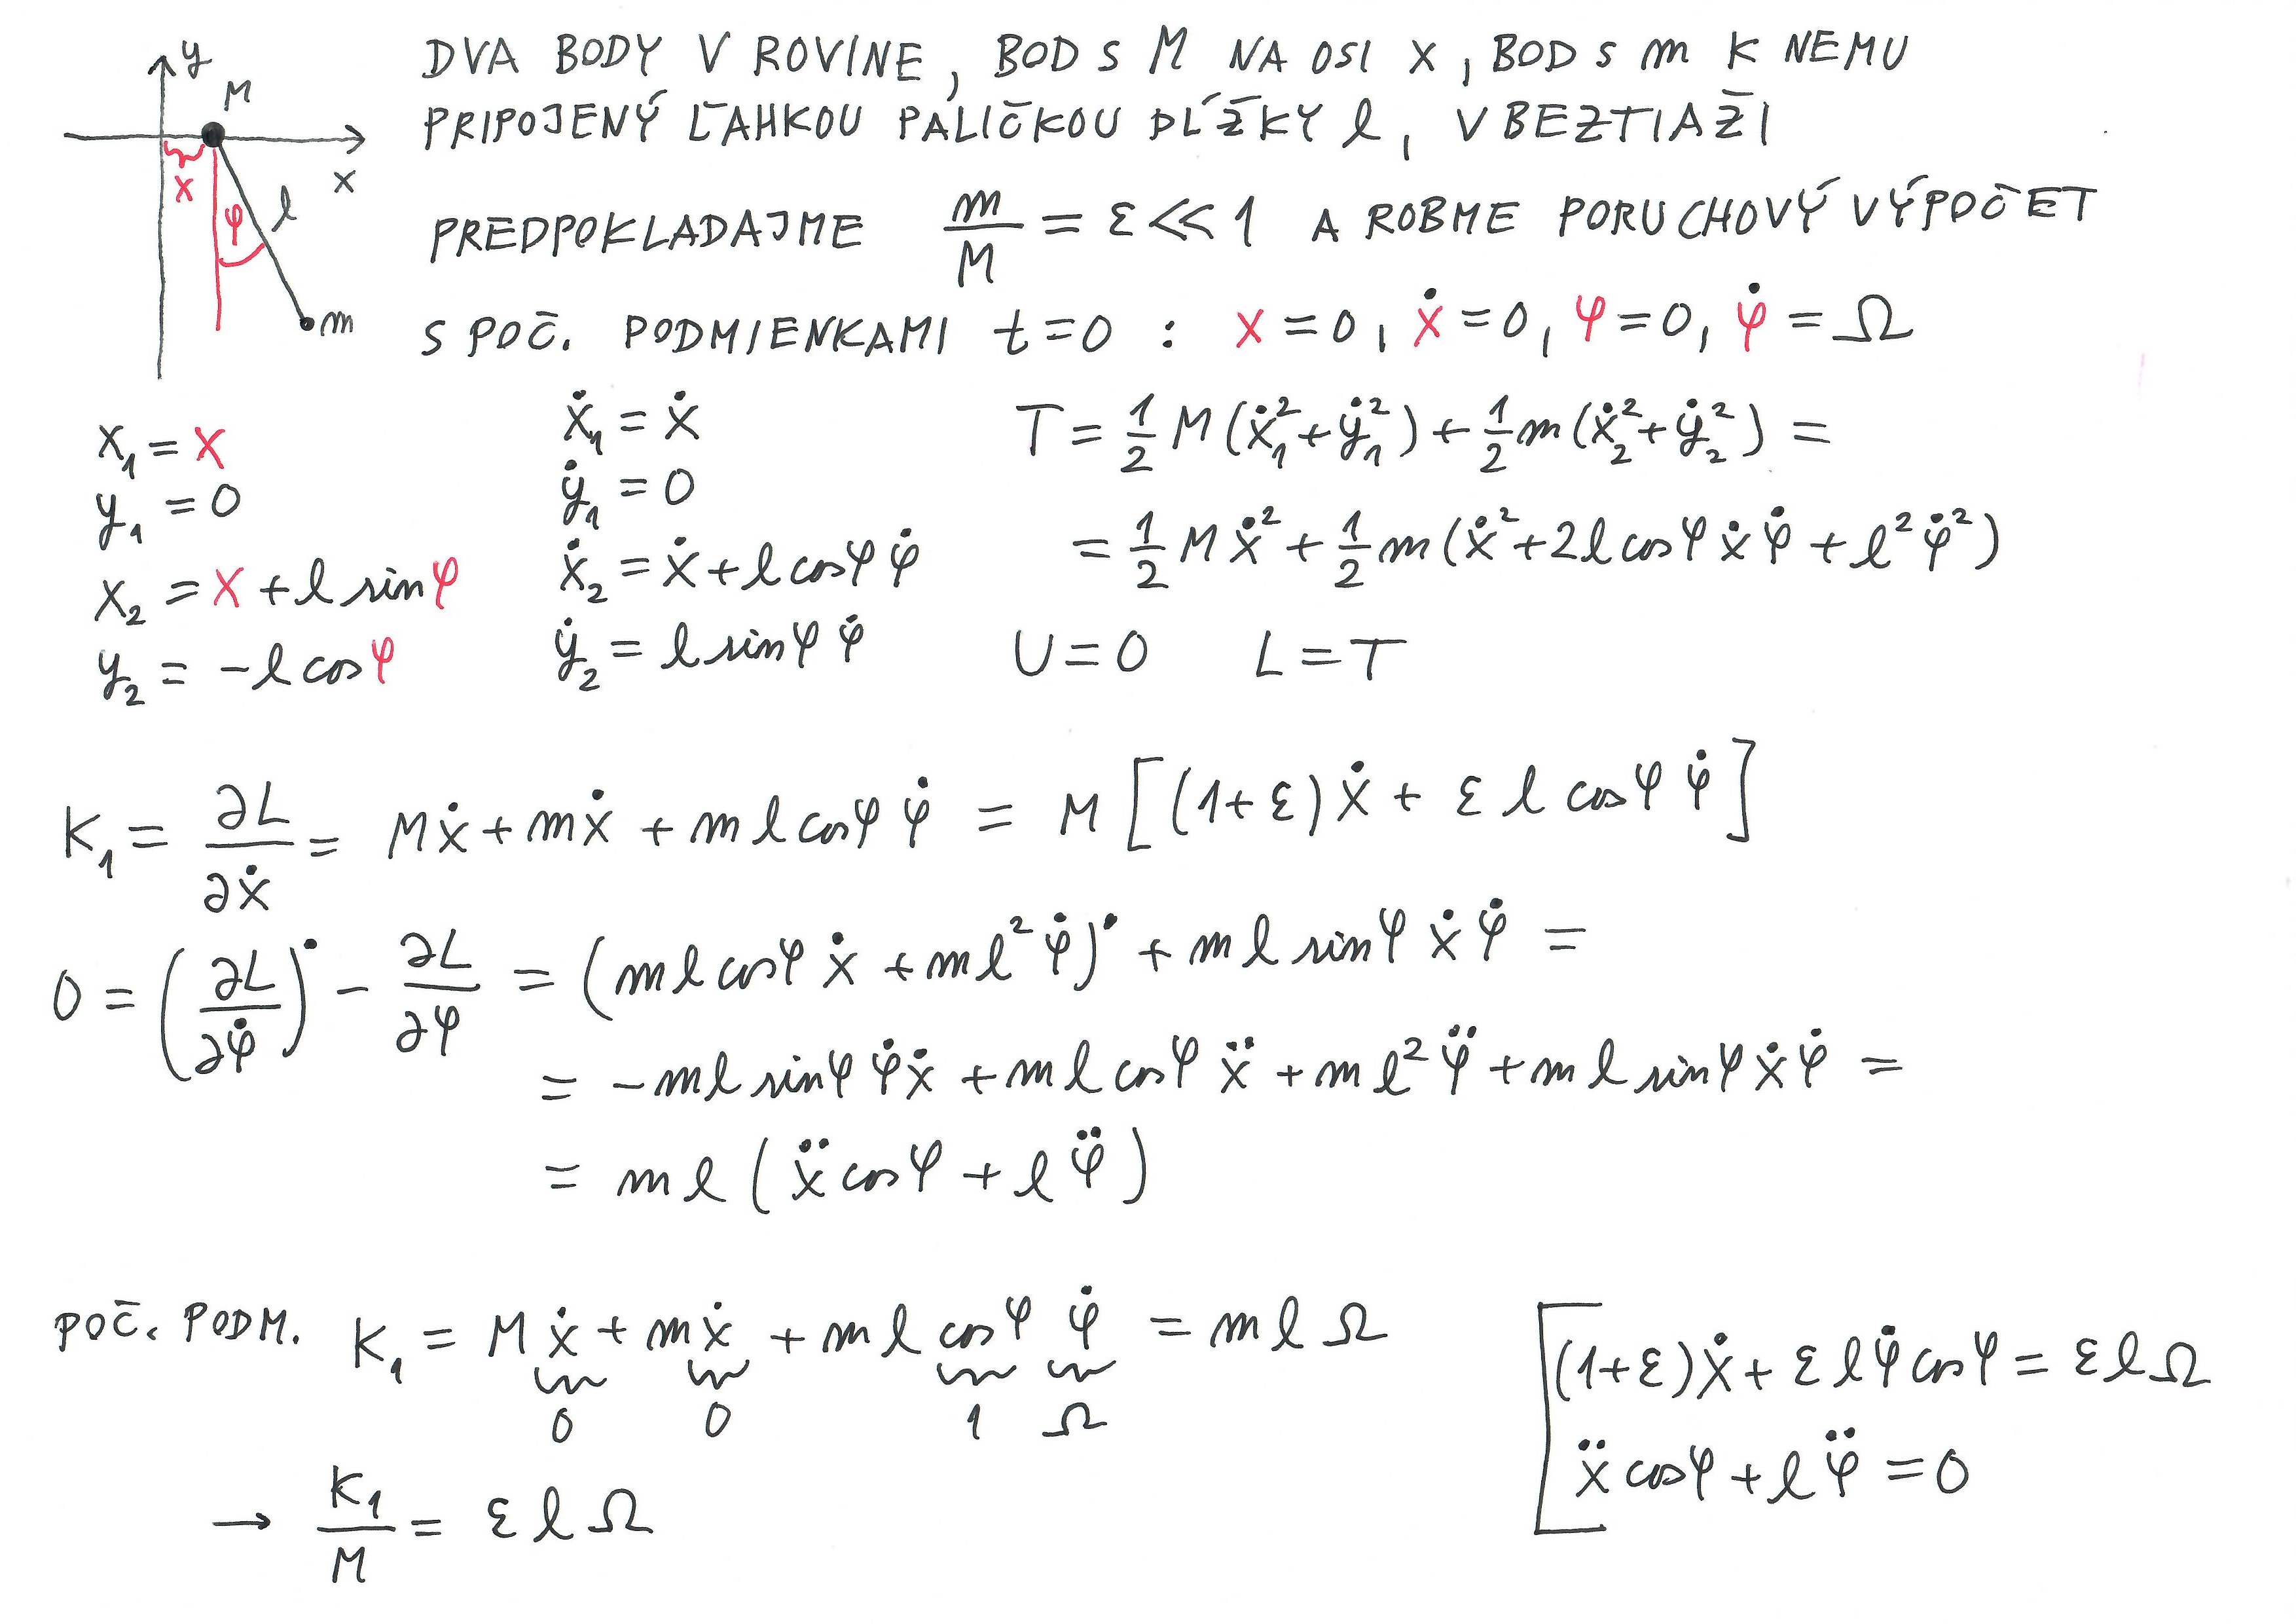 y
M
x
x
φ
l
m
DVA BODY V ROVINE, BOD S M NA OSI X, BOD S m K NEMU
PRIPOJENÝ ĽAHKOU PALIČKOU DĹŽKY l, V BEZTIAŽI
PREDPOKLADAJME m/M = ε ≪ 1 A ROBME PORUCHOVÝ VÝPOČET
S POČ. PODMIENKAMI t=0 : x=0, ẋ=0, φ=0, φ̇=Ω
x₁ = x
y₁ = 0
x₂ = x + l sinφ
y₂ = -l cosφ
ẋ₁ = ẋ
ẏ₁ = 0
ẋ₂ = ẋ + l cosφ φ̇
ẏ₂ = l sinφ φ̇
T = 1/2 M(ẋ₁² + ẏ₁²) + 1/2 m(ẋ₂² + ẏ₂²) =
= 1/2 M ẋ² + 1/2 m(ẋ² + 2l cosφ ẋ φ̇ + l² φ̇²)
U = 0 L = T
K₁ = ∂L/∂ẋ = Mẋ + mẋ + m l cosφ φ̇ = M [(1+ε)ẋ + ε l cosφ φ̇]
0 = (∂L/∂φ̇)˙ - ∂L/∂φ = (m l cosφ ẋ + m l² φ̇)˙ + m l sinφ ẋ φ̇ =
= -m l sinφ φ̇ ẋ + m l cosφ ẍ + m l² φ̈ + m l sinφ ẋ φ̇ =
= m l (ẍ cosφ + l φ̈)
POČ. PODM. K₁ = M ẋ + m ẋ + m l cosφ φ̇ = m l Ω
0 0 1 Ω
→ K₁/M = ε l Ω
(1+ε)ẋ + ε l φ̇ cosφ = ε l Ω
ẍ cosφ + l φ̈ = 0